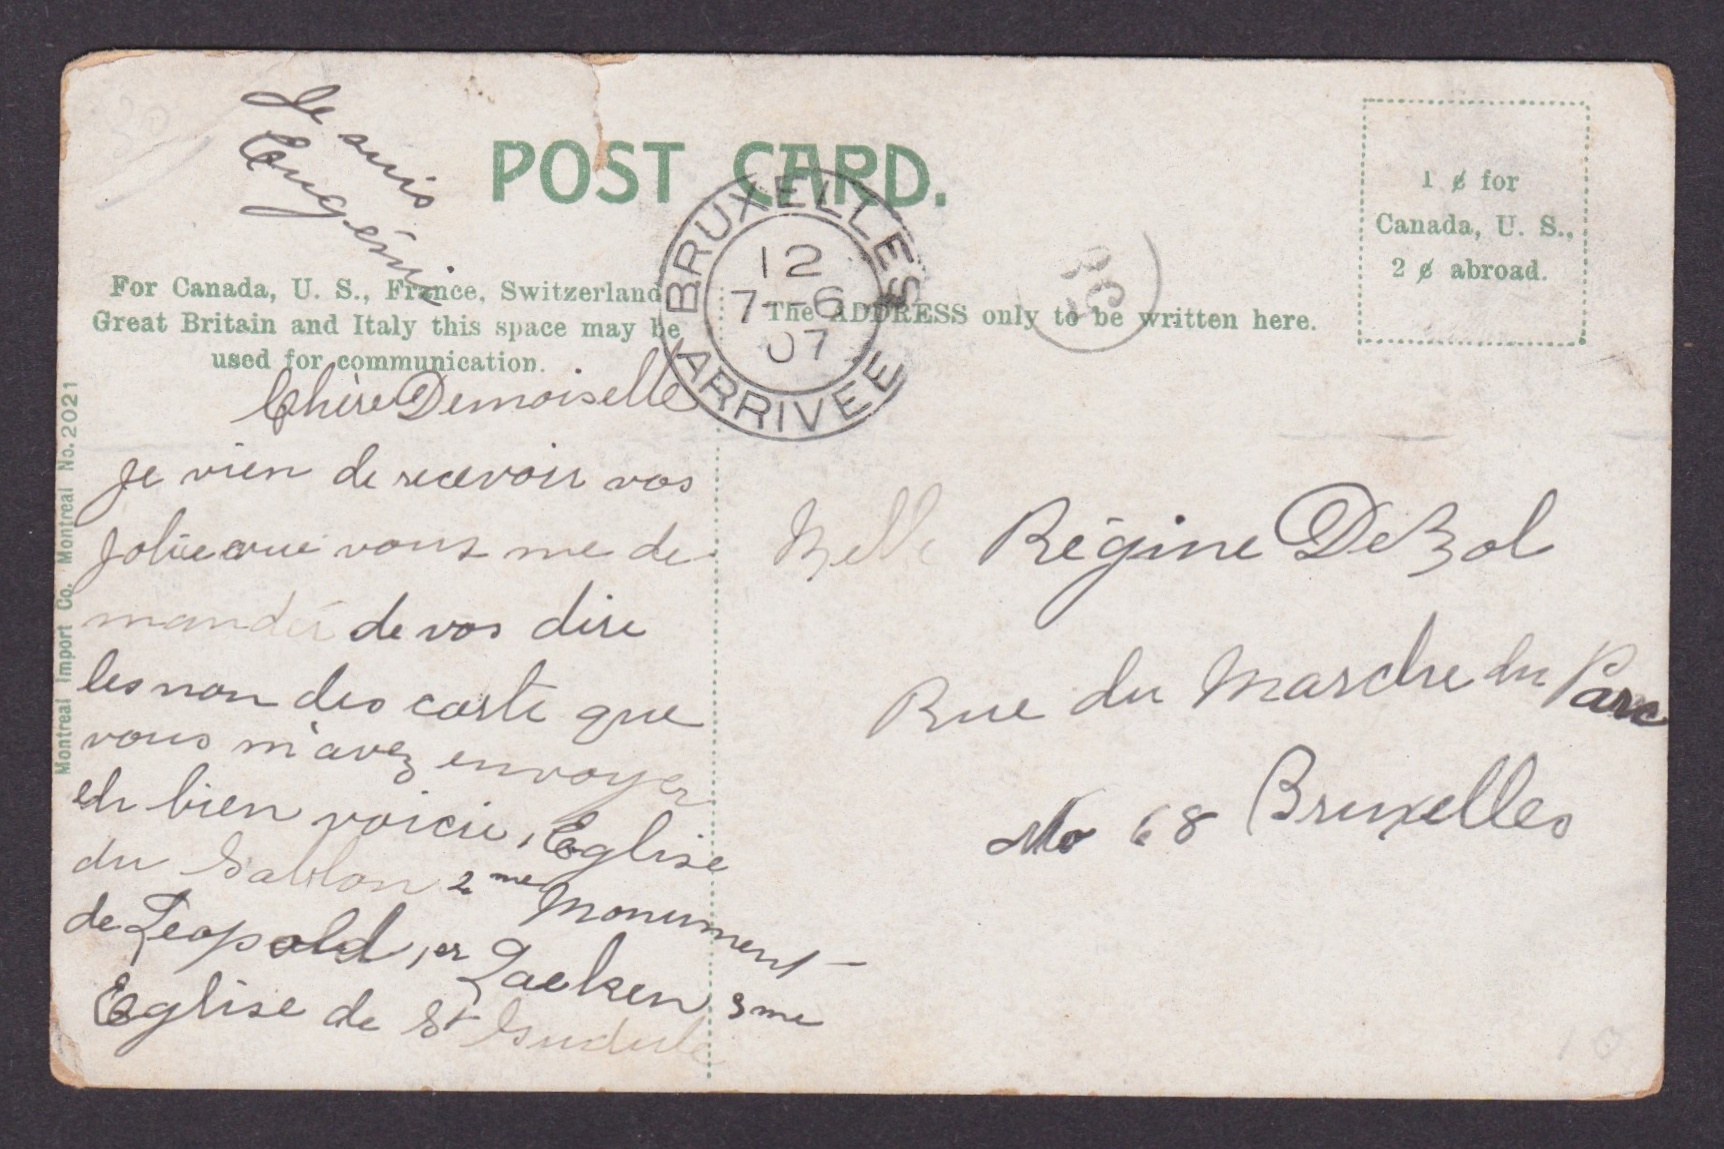 Je suis
Eugénie
POST CARD.
BRUXELLES
12
7-6
07
ARRIVEE
1 ¢ for
Canada, U. S.,
2 ¢ abroad.
For Canada, U. S., France, Switzerland
Great Britain and Italy this space may be
used for communication.
The ADDRESS only to be written here.
Montreal Import Co. Montreal No. 2021
Chère Demoiselle
je vien de recevoir vos
jolie vue vous me de
mander de vos dire
les nom des carte que
vous m'avez envoyer
eh bien voicie, Eglise
du Sablon 2me Monument
de Leopold 1er Laeken 3me
Eglise de St Gudule
Melle Régine DeBol
Rue du Marche du Parc
No 68 Bruxelles